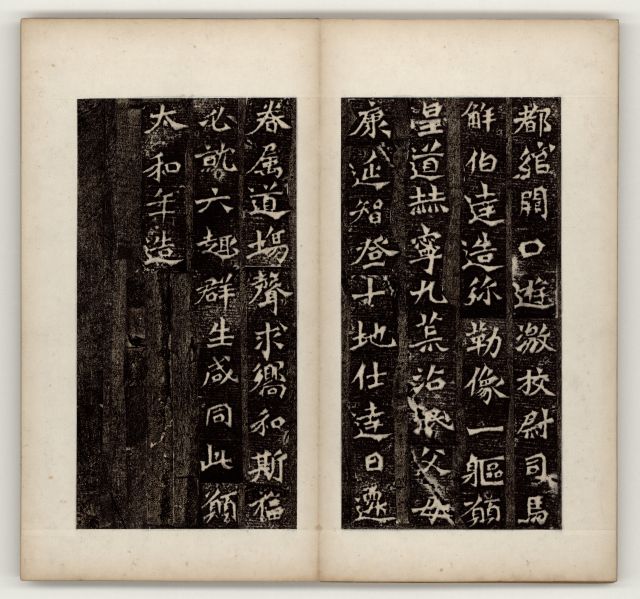 都綰闕口遊激校尉司馬
解伯達造弥勒像一軀願
皇道赫寧九荒沾泯父母
康延智登十地仕達日遷
眷属道場聲求嚮和斯福
必就六趣群生咸同此願
太和年造